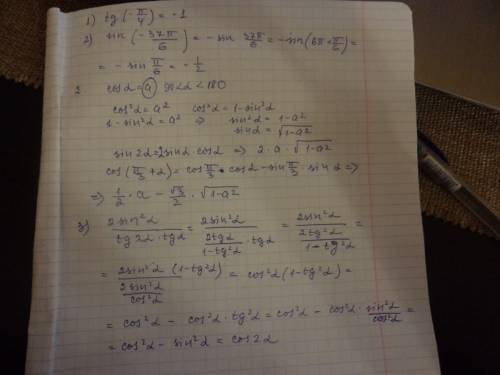 1) tg (-π/4) = -1
2) sin (-37π/6) = - sin 37π/6 = - sin (6π + π/6) =
= - sin π/6 = - 1/2
2 cos α = a 90 < α < 180
cos²α = a² cos²α = 1 - sin²α
1 - sin²α = a² ⇒ sin²α = 1 - a²
sin α = √(1-a²)
sin 2α = 2 sin α · cos α ⇒ 2 · a · √(1-a²)
cos (π/3 + α) = cos π/3 · cos α - sin π/3 · sin α ⇒
⇒ 1/2 · a - √3/2 · √(1-a²)
3) 2sin²α / (tg 2α · tg α) = 2sin²α / (2tgα/(1-tg²α) · tgα) = 2sin²α / (2tg²α/(1-tg²α)) =
= 2sin²α (1-tg²α) / (2sin²α/cos²α) = cos²α (1-tg²α) =
= cos²α - cos²α · tg²α = cos²α - cos²α · sin²α/cos²α =
= cos²α - sin²α = cos 2α